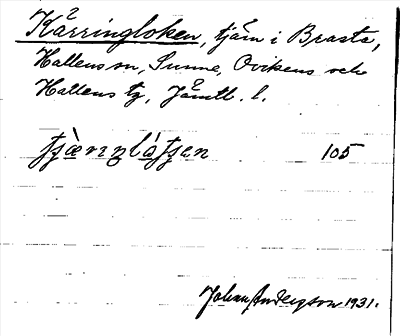 Kärringloken, tjärn i Brasta,
Hallens sn, Sunne, Ovikens och
Hallens tg, Jämtl. l.
105
Johan Anderson 1931.